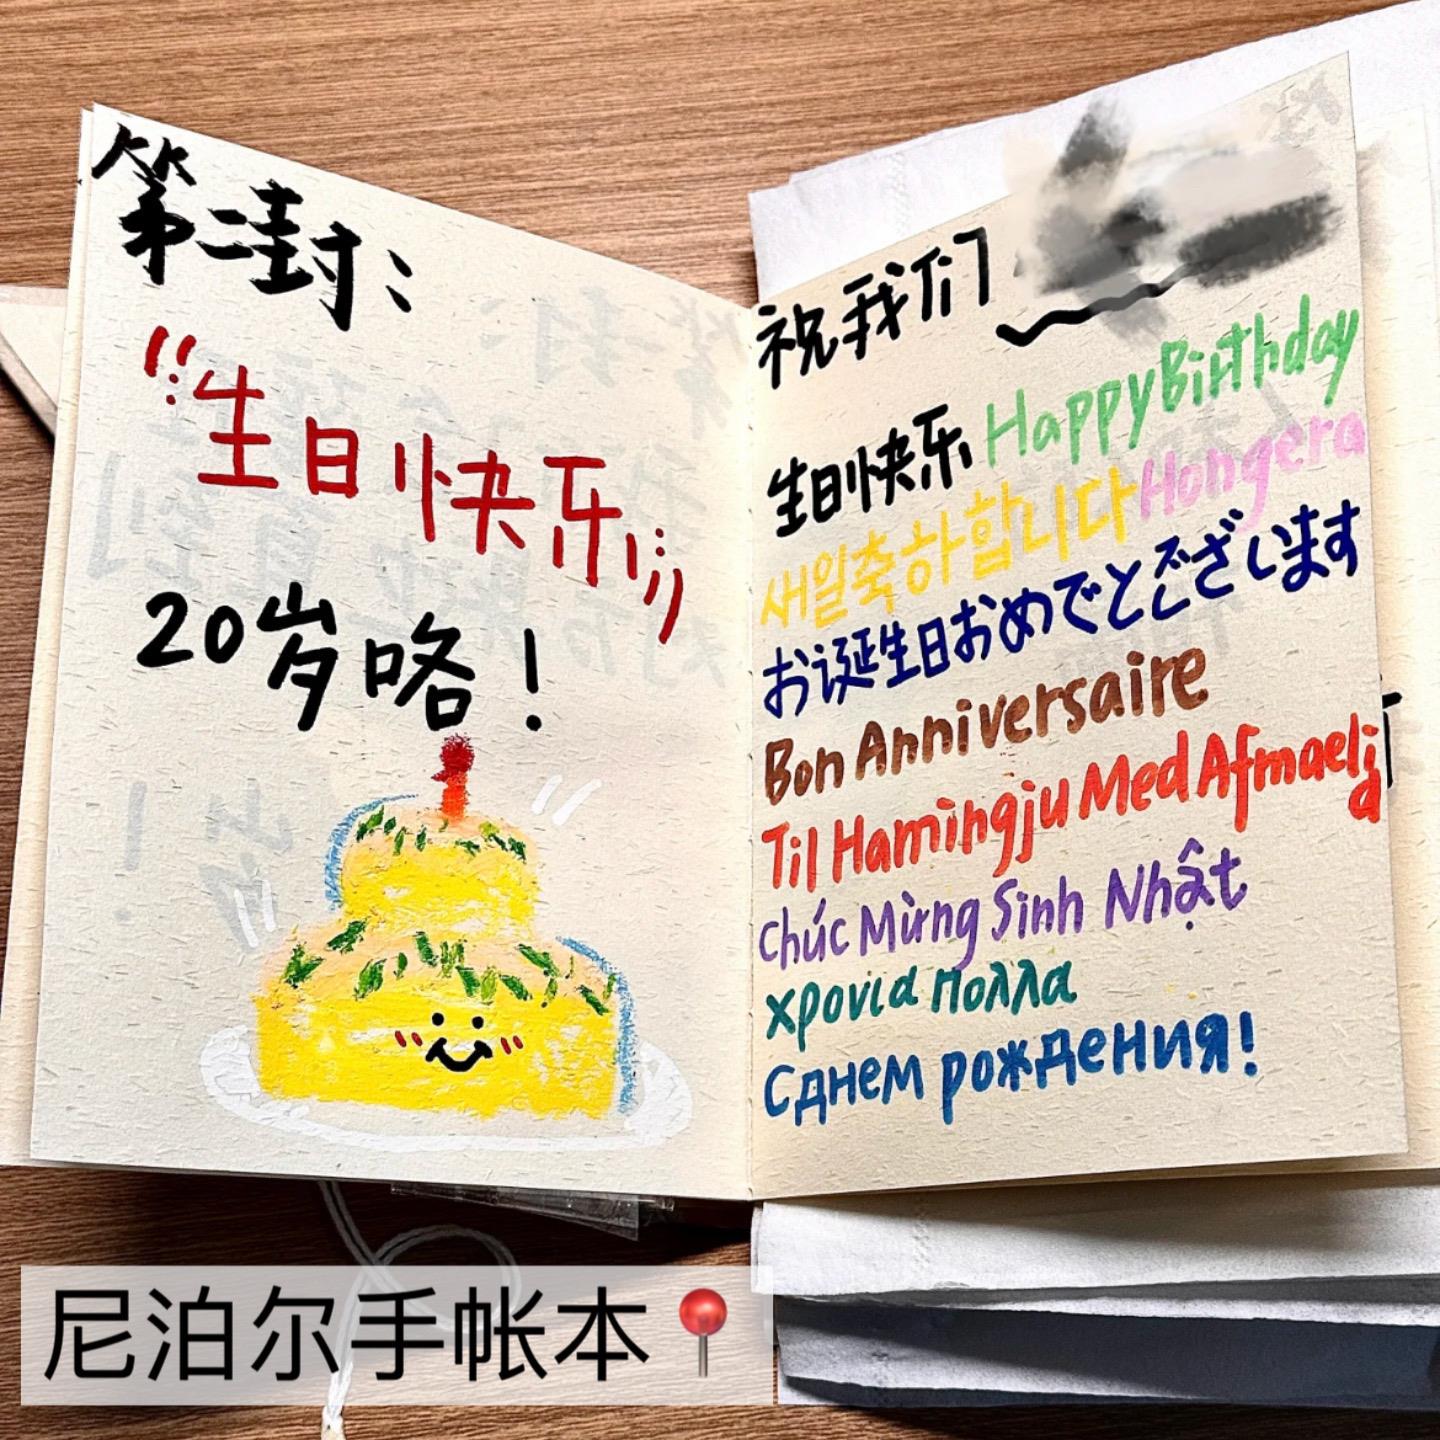 第二封：
"生日快乐"
20岁咯！
祝我们
生日快乐 Happy Birthday
새일축하합니다 Hongera
お诞生日おめでとございます
Bon Anniversaire
Til Hamingju Med Afmaelid
Chúc Mừng Sinh Nhật
χρονια πολλα
С днем рождения!
尼泊尔手帐本